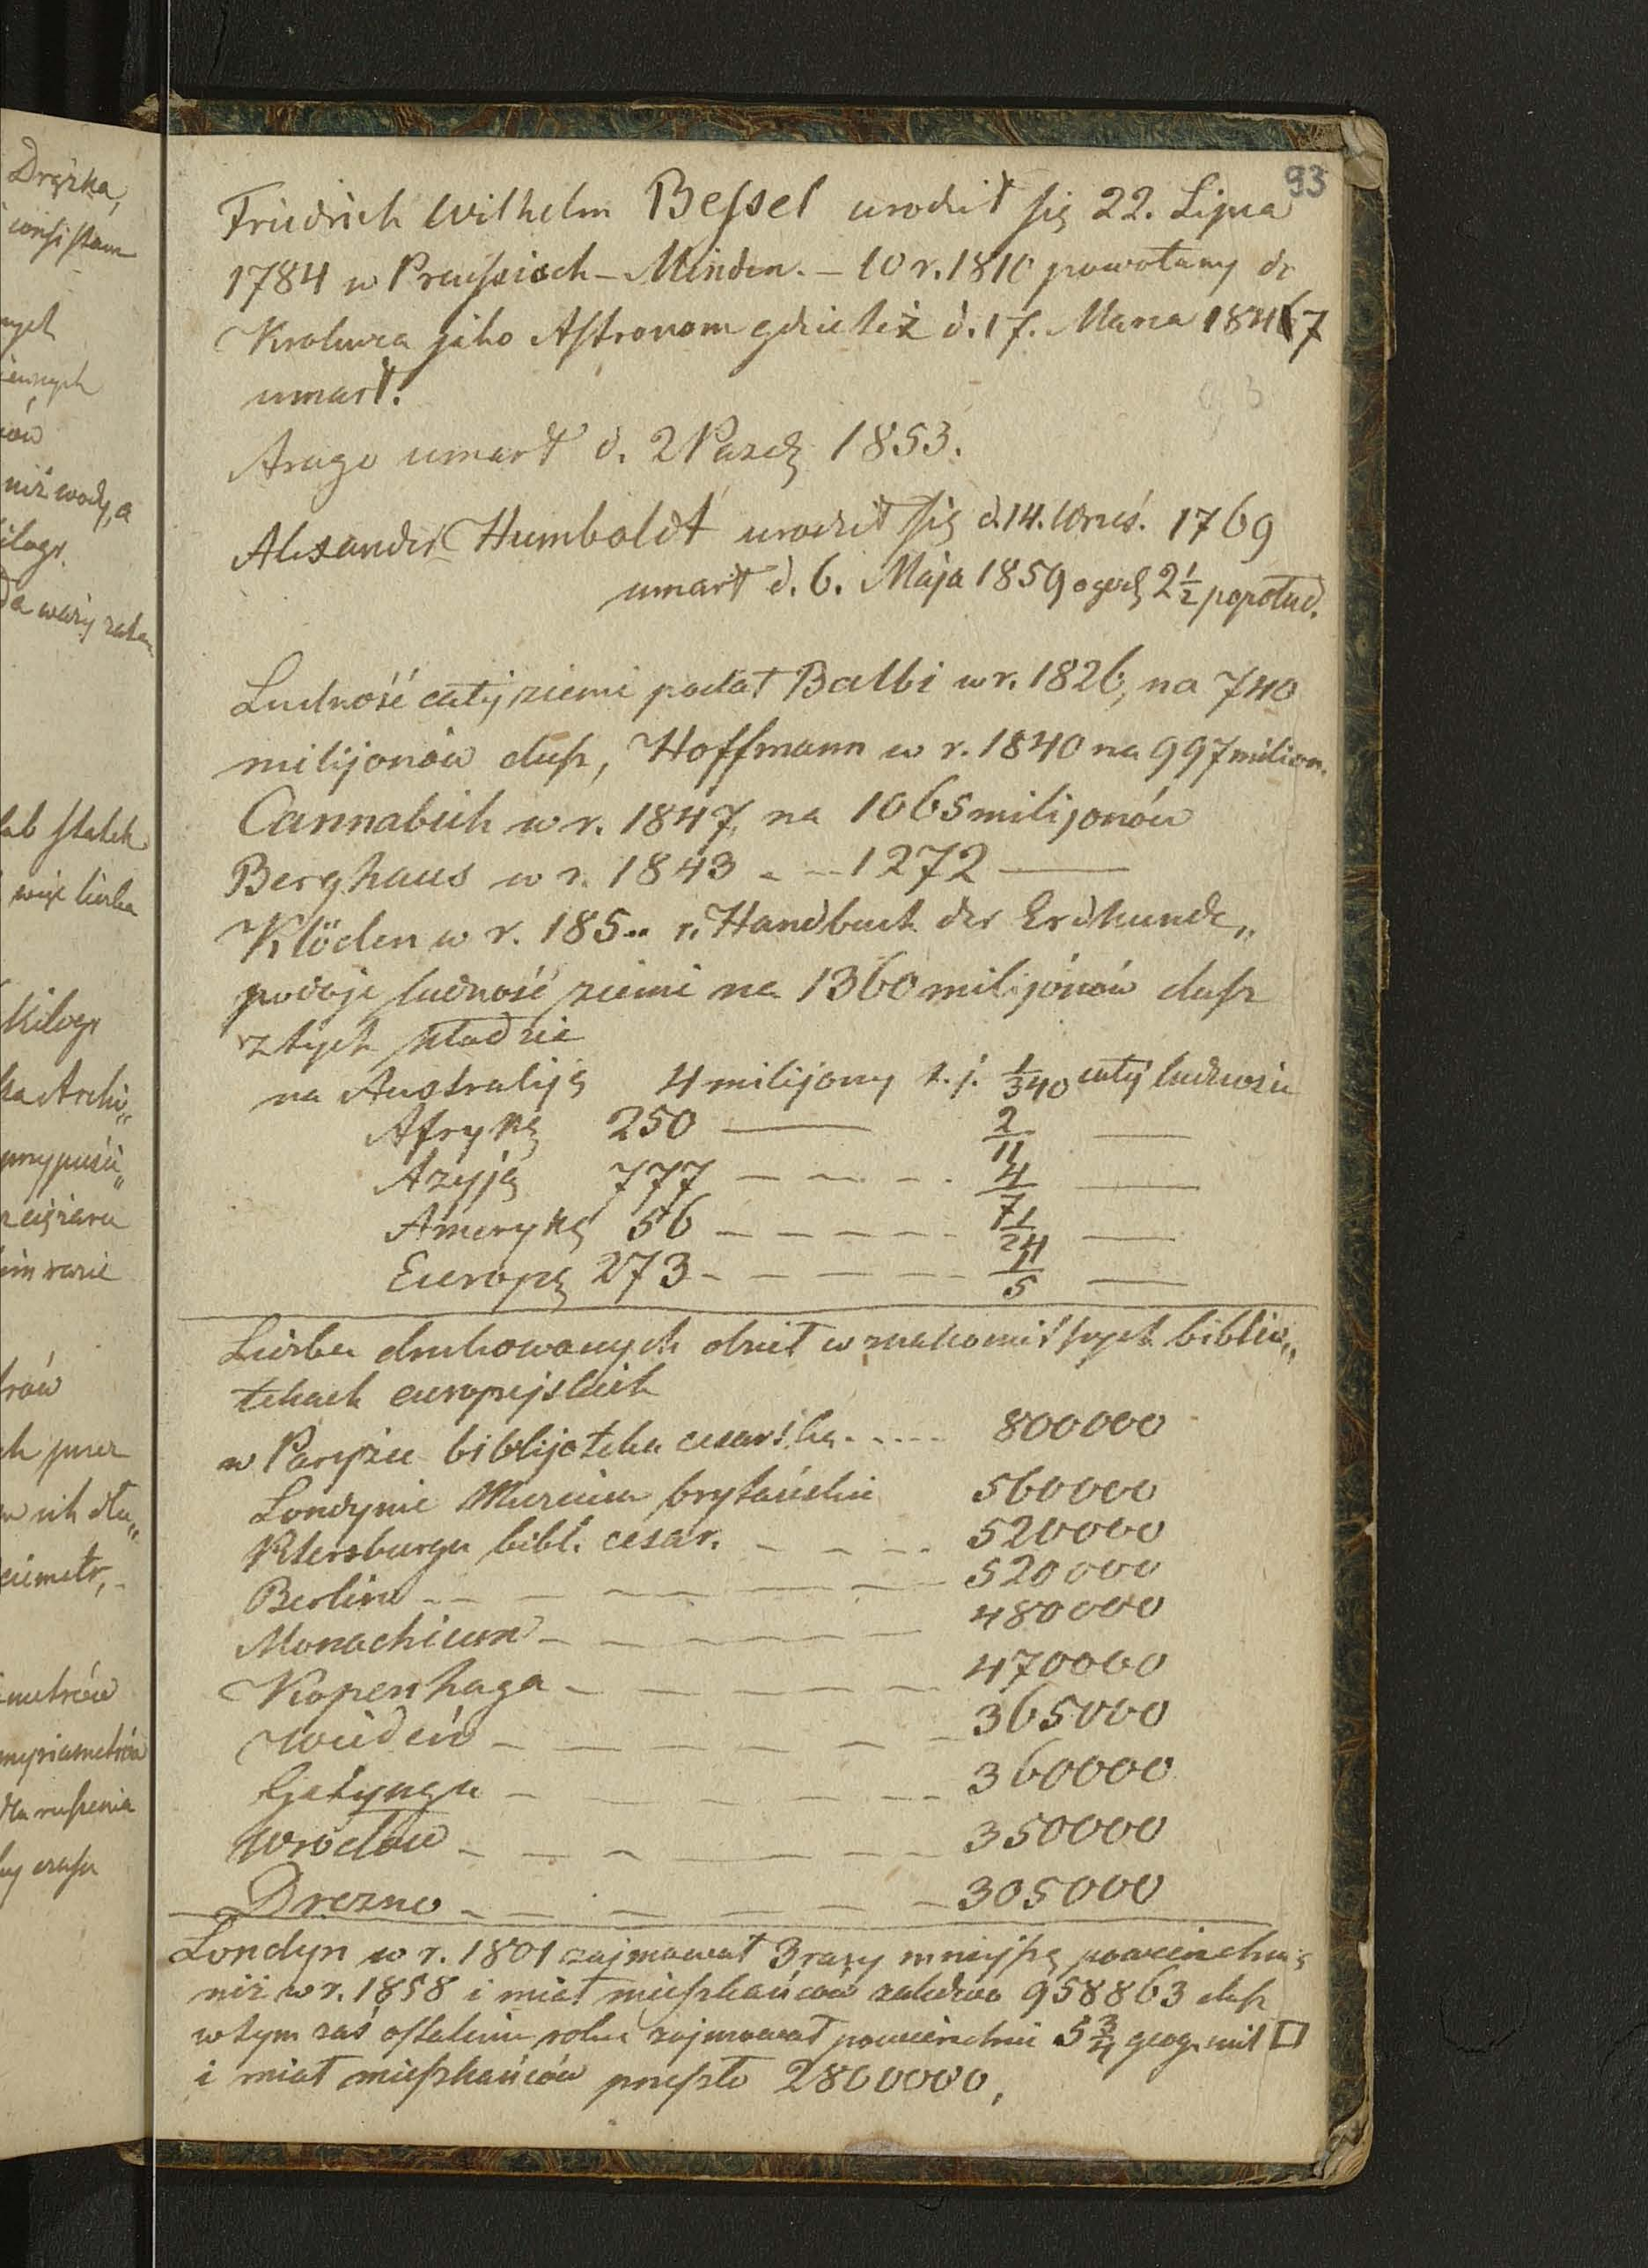 93
Friedrich Wilhelm Beſsel urodził ſię 22. Lipca
1784 w Preuſsisch-Minden. – W r. 1810 powołany do
Krolewca jako Aſtronom gdzie też d. 17. Marca 1847
umarł.
Arago umarł d. 2 Pazdz 1853.
Alexander Humboldt urodził ſię d. 14. Wrześ. 1769
umarł d. 6. Maja 1859 o godz 2½ popołud.
Ludność całej ziemi podał Balbi w r. 1826, na 740
milijonów duſz, Hoffmann w r. 1840 na 997 milion.
Cannabich w r. 1847, na 1065 milijonów
Berghaus w r. 1843 - — 1272 ——
Klöden w r. 185.. r. Handbuch der Erdkunde„
podaje ludność ziemi na 1360 milijónów duſz
z tych kładzie
na Australiję 4 milijony t. j. 1/340 całej ludności
Afrykę 250 —— 2/11 ——
Azyję 777 – – – - 4/7 ——
Amerykę 56 – – – – – 1/24 ——
Europę 273 - – – – – 1/5 ——
Liczba drukowanych dzieł w znakomitſzych biblio„
tekach europejskich
w Paryżu biblijoteka cesarska. . . . . 800000
Londynie Muzeum brytańskie 560000
Petersburgu bibl. cesar. – – – . 520000
Berlinie - – – – – – – – 520000
Monachium – – – – – – – 480000
Kopenhaga – – – – – – 470000
Wiedeń – – – – – – – 365000
Getynga – – – – – – – 360000
Wrocław – – – – – – – 350000
Drezno – – – – – – – 305000
Londyn w r. 1801 zajmował 3 razy mniejſzą powierzchnię
niż w r. 1858 i miał mieſzkańców zaledwo 958863 duſz
w tym zaś oſtatnim roku zajmował powierzchnie 5 3/4 geog. mil □
i miał mieſzkańców przeſzło 2800000,
Drążka,
nych
ów
niż wody, a
kilogr.
Kilogr
ka Archi„
przypuśc„
rów
ch przez
w ich dłu„
metrów
myriametrów
dla ruſzenia